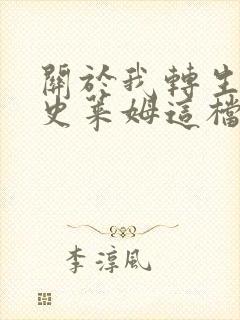 關於我轉生
史萊姆這檔
李淳風